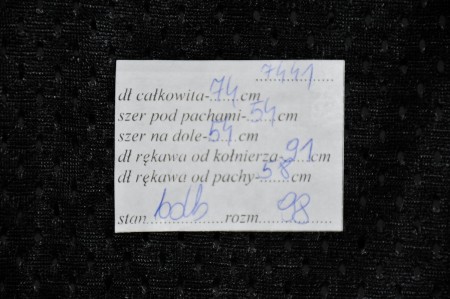 7441
dł całkowita-74cm
szer pod pachami-54cm
szer na dole-54cm
dł rękawa od kołnierza-91cm
dł rękawa od pachy-58cm
stan bdb rozm 98